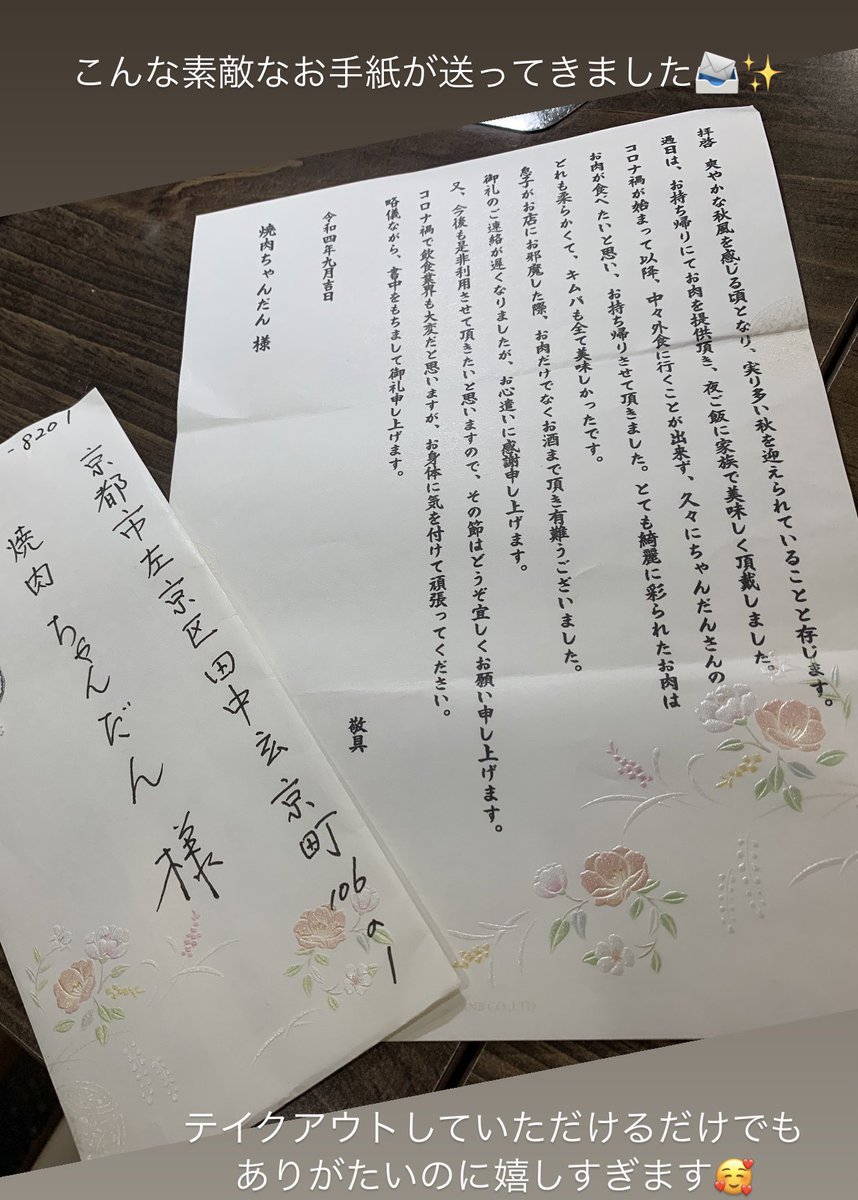 こんな素敵なお手紙が送ってきました📨✨
拝啓 爽やかな秋風を感じる頃となり、実り多い秋を迎えられていることと存じます。
過日は、お持ち帰りにてお肉を提供頂き、夜ご飯に家族で美味しく頂戴しました。
コロナ禍が始まって以降、中々外食に行くことが出来ず、久々にちゃんだんさんの
お肉が食べたいと思い、お持ち帰りさせて頂きました。とても綺麗に彩られたお肉は
どれも柔らかくて、キムパも全て美味しかったです。
息子がお店にお邪魔した際、お肉だけでなくお酒まで頂き有難うございました。
御礼のご連絡が遅くなりましたが、お心遣いに感謝申し上げます。
又、今後も是非利用させて頂きたいと思いますので、その節はどうぞ宜しくお願い申し上げます。
コロナ禍で飲食業界も大変だと思いますが、お身体に気を付けて頑張ってください。
略儀ながら、書中をもちまして御礼申し上げます。
敬具
令和四年九月吉日
焼肉ちゃんだん 様
-8201
京都市左京区田中玄京町106の1
焼肉 ちゃんだん 様
テイクアウトしていただけるだけでも
ありがたいのに嬉しすぎます🥰